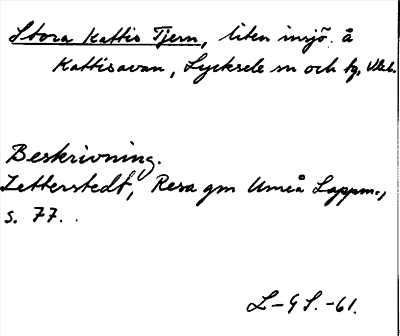 Stora Kattis Tjern, liten insjö å
Kattisavan, Lycksele sn och lg, Vleb.
Beskrivning.
Zetterstedt, Resa gm Umeå Lappm.,
s. 77.
L-G S. -61.